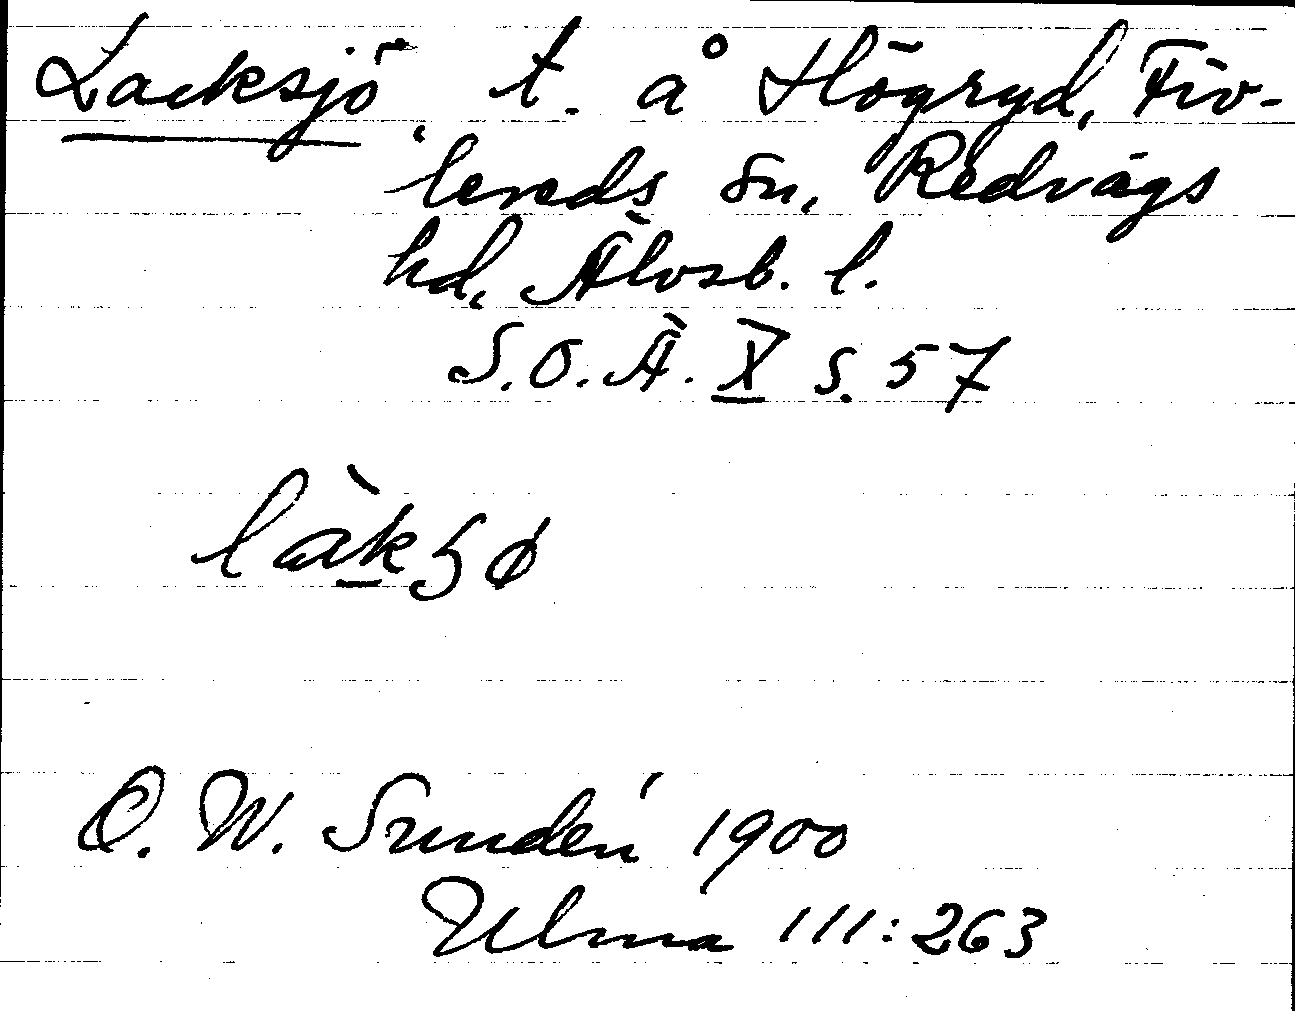 Lacksjö, t. å Högryd, Fiv-
lereds sn, Redvägs
hd, Älvsb. l.
S.O.Ä. X s. 57
O. W. Sundén 1900
Ulma 111:263